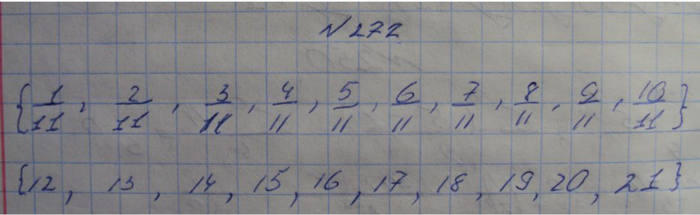 №272
{1/11, 2/11, 3/11, 4/11, 5/11, 6/11, 7/11, 8/11, 9/11, 10/11}
{12, 13, 14, 15, 16, 17, 18, 19, 20, 21}